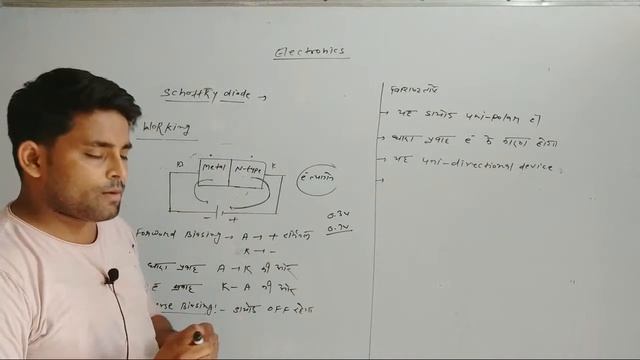 Electronics
Schottky diode →
Working
Metal N-type K
इलेक्ट्रॉन
0.3v
0.7v
Forward Biasing → A → +
K → -
धारा प्रवाह A → K की ओर
प्रवाह K - A की ओर
Biasing:- डायोड OFF रहेगा
विशेषताएँ
→ यह डायोड uni-polar है
→ धारा प्रवाह e के द्वारा होगा
→ यह uni-directional device
→